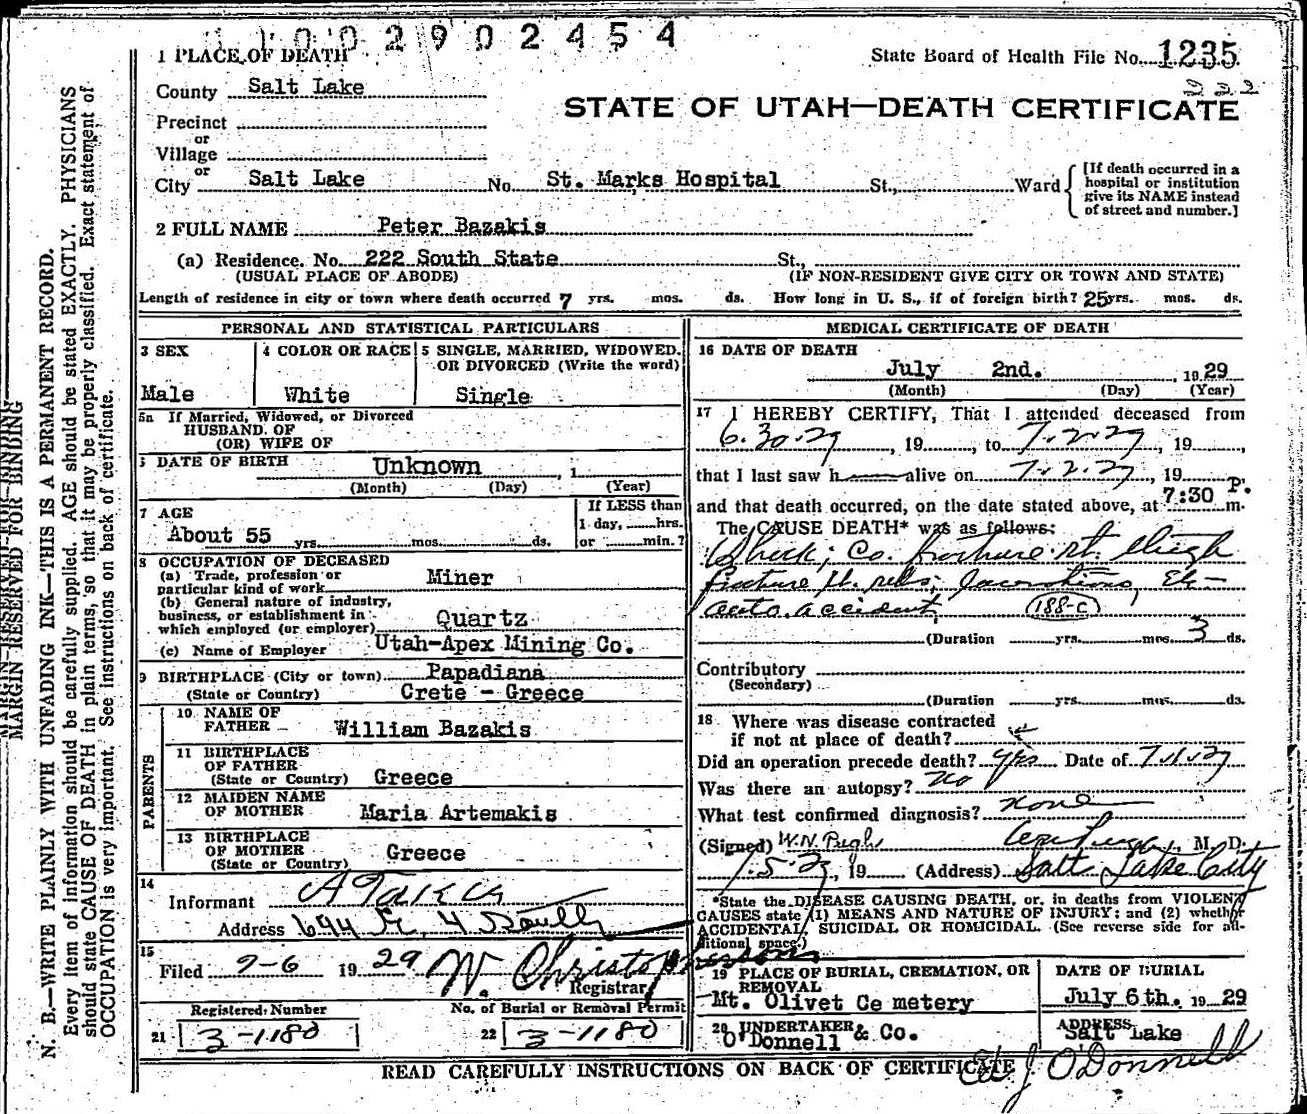 1002902454
1 PLACE OF DEATH
State Board of Health File No. 1235
222
County Salt Lake
STATE OF UTAH—DEATH CERTIFICATE
Precinct
or
Village
or
City Salt Lake No. St. Marks Hospital St., Ward
[If death occurred in a
hospital or institution
give its NAME instead
of street and number.]
2 FULL NAME Peter Bazakis
(a) Residence. No. 222 South State St.,
(USUAL PLACE OF ABODE) (IF NON-RESIDENT GIVE CITY OR TOWN AND STATE)
Length of residence in city or town where death occurred 7 yrs. mos. ds. How long in U. S., if of foreign birth? 25 yrs. mos. ds.
PERSONAL AND STATISTICAL PARTICULARS
3 SEX
Male
4 COLOR OR RACE
White
5 SINGLE, MARRIED, WIDOWED,
OR DIVORCED (Write the word)
Single
5a If Married, Widowed, or Divorced
HUSBAND OF
(OR) WIFE OF
6 DATE OF BIRTH Unknown , 1
(Month) (Day) (Year)
7 AGE
About 55 yrs. mos. ds.
If LESS than
1 day, hrs.
or min.?
8 OCCUPATION OF DECEASED
(a) Trade, profession or
particular kind of work Miner
(b) General nature of industry,
business, or establishment in
which employed (or employer) Quartz
(c) Name of Employer Utah-Apex Mining Co.
9 BIRTHPLACE (City or town) Papadiana
(State or Country) Crete - Greece
PARENTS
10 NAME OF
FATHER William Bazakis
11 BIRTHPLACE
OF FATHER
(State or Country) Greece
12 MAIDEN NAME
OF MOTHER Maria Artemakis
13 BIRTHPLACE
OF MOTHER
(State or Country) Greece
14
Informant
Address 644 4 South
15
Filed 7-6 1929 W. Christopherson
Registrar
Registered Number
21 3-1180
No. of Burial or Removal Permit
22 3-1180
MEDICAL CERTIFICATE OF DEATH
16 DATE OF DEATH
July 2nd. , 1929
(Month) (Day) (Year)
17 I HEREBY CERTIFY, That I attended deceased from
6.30.29, 19 , to 7.2.29, 19 ,
that I last saw h alive on 7.2.29, 19
and that death occurred, on the date stated above, at 7:30 P. m.
The CAUSE DEATH* was as follows:
Shock; Co. fracture rt. thigh
fracture rt. ribs; lacerations, Etc
auto. accident 188-c
(Duration yrs. mos. 3 ds.
Contributory
(Secondary)
(Duration yrs. mos. ds.
18 Where was disease contracted
if not at place of death?
Did an operation precede death? yes Date of 7.1.29
Was there an autopsy? no
What test confirmed diagnosis? none
(Signed) W.N. Pugh M. D.
7.5.29, 19 (Address) Salt Lake City
*State the DISEASE CAUSING DEATH, or, in deaths from VIOLENT
CAUSES state (1) MEANS AND NATURE OF INJURY: and (2) whether
ACCIDENTAL, SUICIDAL OR HOMICIDAL. (See reverse side for ad-
ditional space.)
19 PLACE OF BURIAL, CREMATION, OR
REMOVAL
Mt. Olivet Ce metery
DATE OF BURIAL
July 6th. 1929
20 UNDERTAKER
O'Donnell & Co.
ADDRESS
Salt Lake
J O'Donnell
READ CAREFULLY INSTRUCTIONS ON BACK OF CERTIFICATE
MARGIN RESERVED FOR BINDING
N. B.—WRITE PLAINLY WITH UNFADING INK—THIS IS A PERMANENT RECORD.
Every item of information should be carefully supplied. AGE should be stated EXACTLY. PHYSICIANS
should state CAUSE OF DEATH in plain terms, so that it may be properly classified. Exact statement of
OCCUPATION is very important. See instructions on back of certificate.